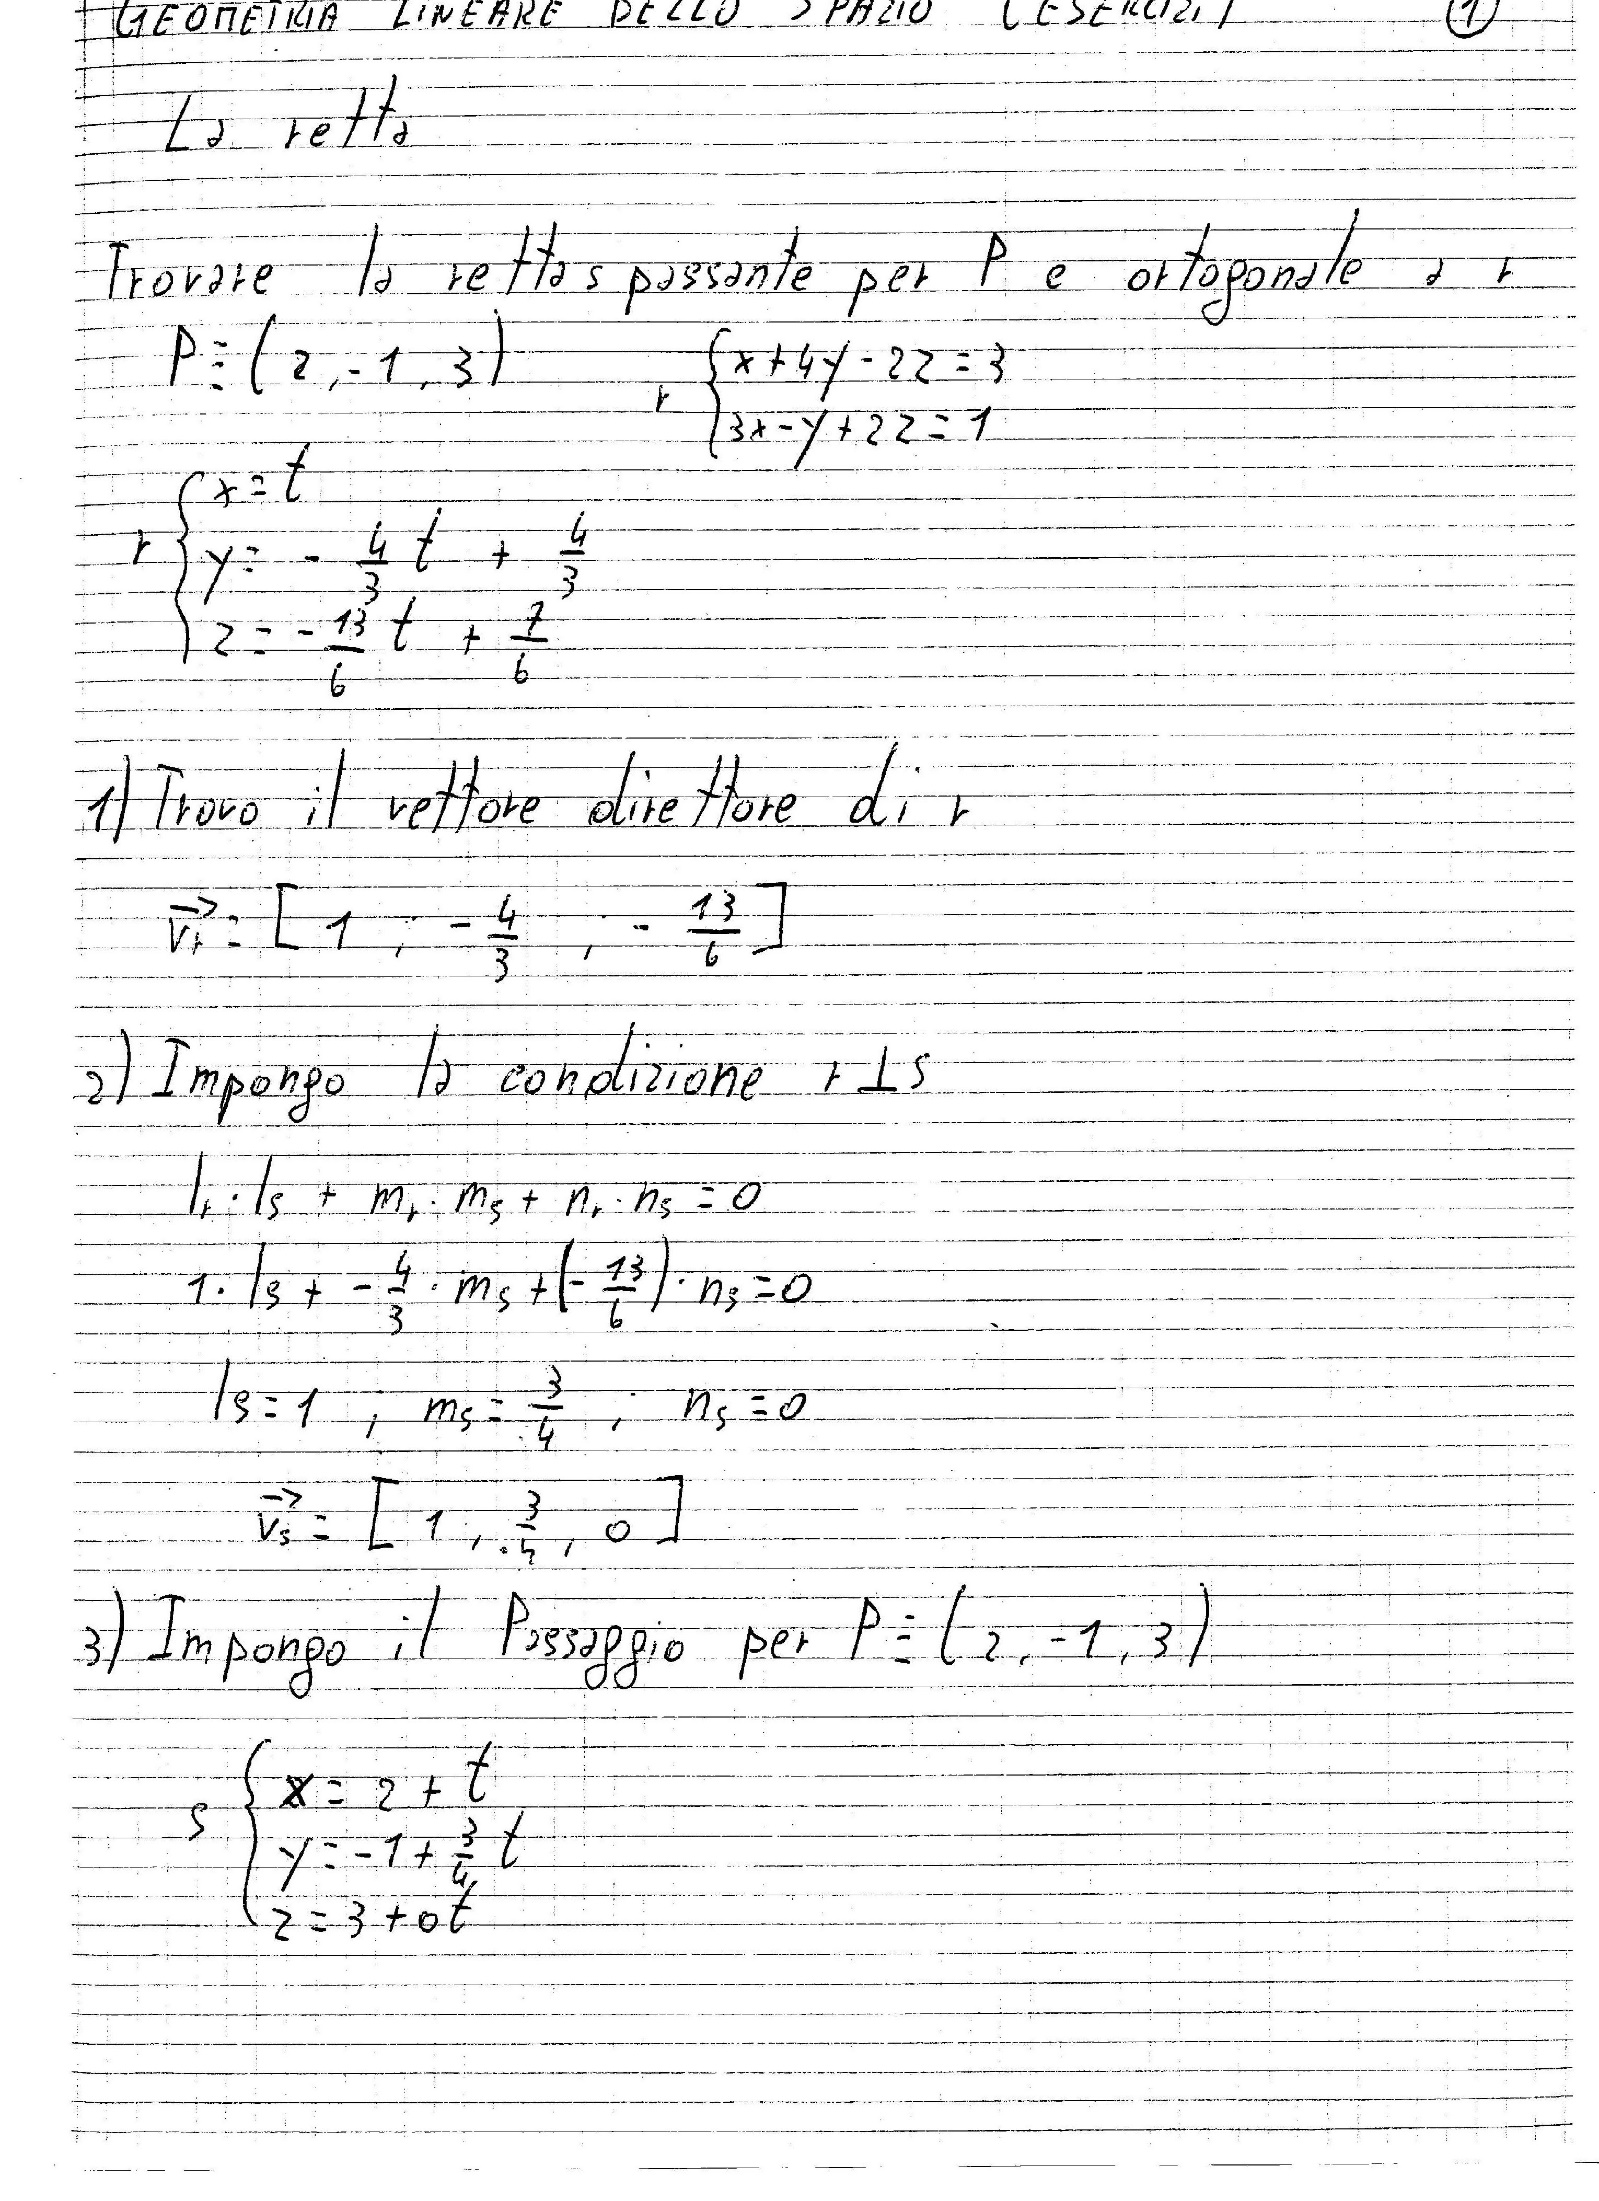 GEOMETRIA LINEARE DELLO SPAZIO (ESERCIZI) 1
La retta
Trovare la retta s passante per P e ortogonale a r
P≡(2,-1,3) r {x+4y-2z=3
3x-y+2z=1
r {x=t
y=-4/3 t + 4/3
z=-13/6 t + 7/6
1) Trovo il vettore direttore di r
→vr = [1 ; -4/3 ; -13/6]
2) Impongo la condizione r⊥s
lr·ls + mr·ms + nr·ns = 0
1·ls + -4/3·ms + (-13/6)·ns = 0
ls=1 ; ms=3/4 ; ns=0
→vs = [1, 3/4, 0]
3) Impongo il Passaggio per P≡(2,-1,3)
s {x=2+t
y=-1+3/4 t
z=3+0t